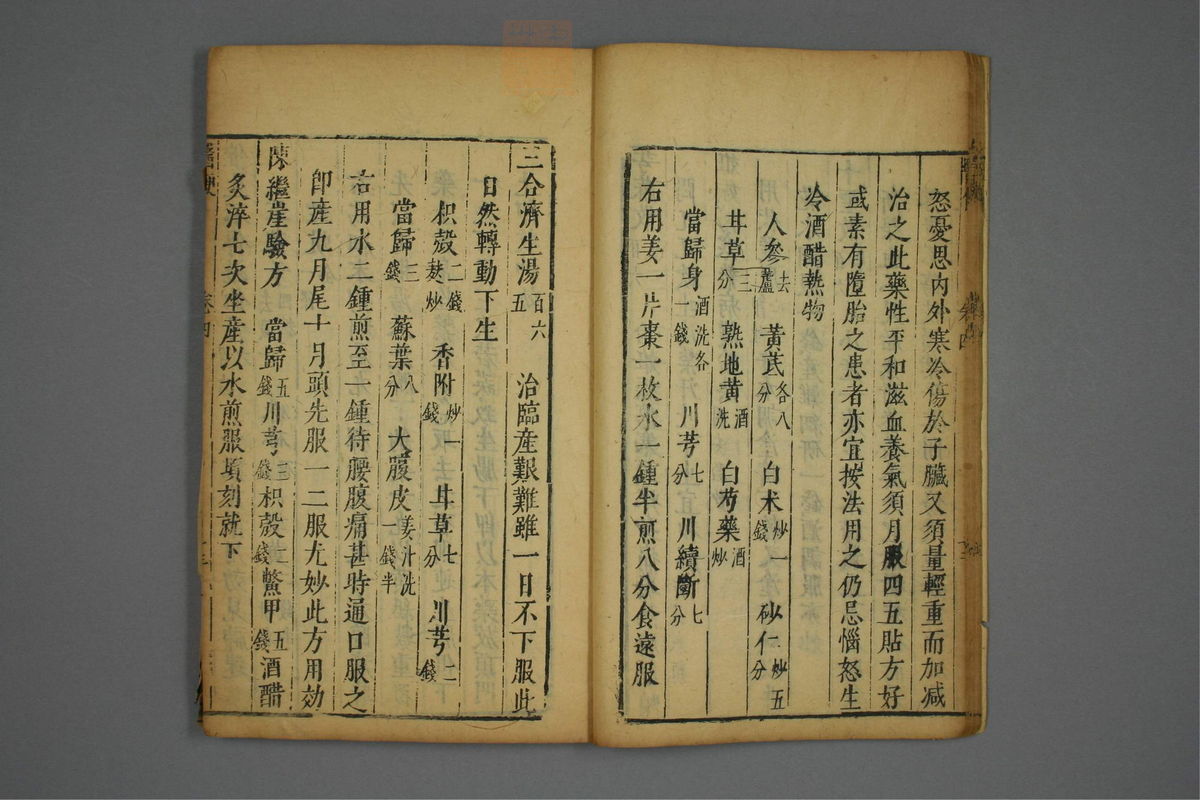 怒憂思内外寒冷傷於子臟又須量輕重而加減
治之此藥性平和滋血養氣須月服四五貼方好
或素有墮胎之患者亦宜按法用之仍忌惱怒生
冷酒醋熱物
人參去蘆 黃芪各八分 白术炒一錢 砂仁炒五分
甘草三分 熟地黄酒洗 白芍藥酒炒
當歸身酒洗各一錢 川芎七分 川續斷七分
右用姜一片棗一枚水一鍾半煎八分食遠服
三合濟生湯百六五 治臨産艱難雖一日不下服此
自然轉動下生
枳殻二錢麩炒 香附炒一錢 甘草七分 川芎二錢
當歸三錢 蘇葉八分 大腹皮姜汁洗一錢半
右用水二鍾煎至一鍾待腰腹痛甚時通口服之
卽産九月尾十月頭先服一二服尤妙此方用効
陳繼崖驗方 當歸五錢川芎三錢枳殻二錢鱉甲五錢酒醋
炙淬七次坐産以水煎服塡刻就下
卷四